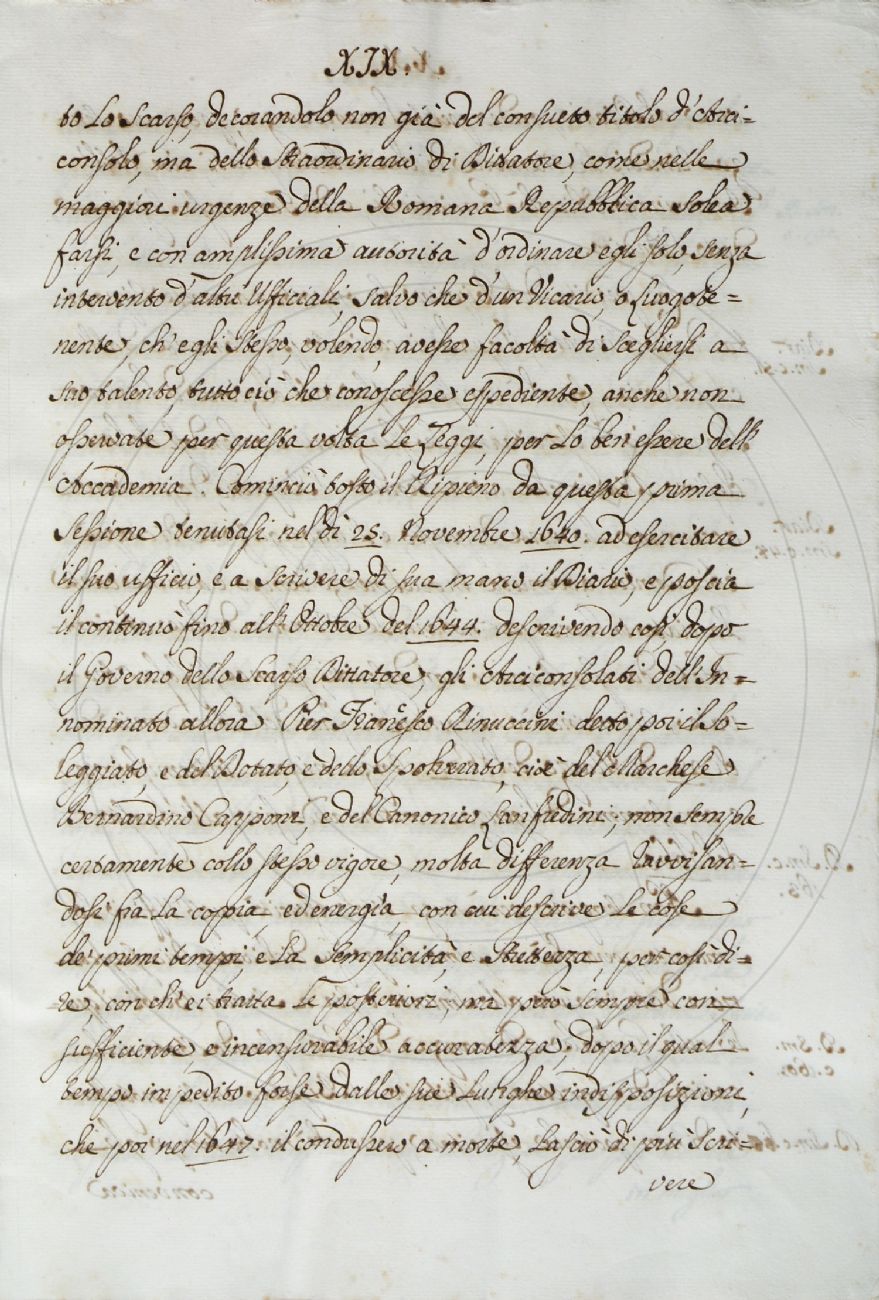 XIX.
to Lo Scarso, decorandolo non già del consueto titolo d'Arci=
consolo, ma dello Straordinario di Dittatore, come nelle
maggiori urgenze della Romana Repubblica Solea
farsi, e con amplissima autorità d'ordinare egli solo, senza
intervento d'altri Ufficiali, salvo che d'un Vicario, o Luogote=
nente, ch'egli Stesso, volendo, avesse facoltà di Scegliersi a
suo talento, tutto ciò che conoscesse espediente, anche non
osservate per questa volta Le Leggi, per Lo ben essere dell'
Accademia. Cominciò tosto il Ripieno da questa prima
Sessione tenutasi nel dì 25. Novembre 1640. ad esercitare
il suo ufficio, e a Scrivere di sua mano il Diario, e poscia
il continuò fino all'Ottobre del 1644. descrivendo così dopo
il Governo dello Scarso Dittatore, gli Arciconsolati dell'In=
nominato allora Pier Francesco Rinuccini detto poi il So=
leggiato, e del Dotato, e dello Spolverato, cioè del Marchese
Bernardino Capponi, e del Canonico Lanfredini; non sempre
certamente collo stesso vigore, molta differenza ravvisan=
dosi fra La copia, ed energia, con cui descrive Le cose
de' primi tempi, e La Semplicità, e Strettezza, per così di=
re, con ch'ei tratta Le posteriori, ma però Sempre con
sufficiente, e incensurabile accuratezza; dopo il qual
tempo impedito forse dalle sue Lunghe indisposizioni,
che poi nel 1647. il condussero a morte, Lasciò di più Scri=
vere